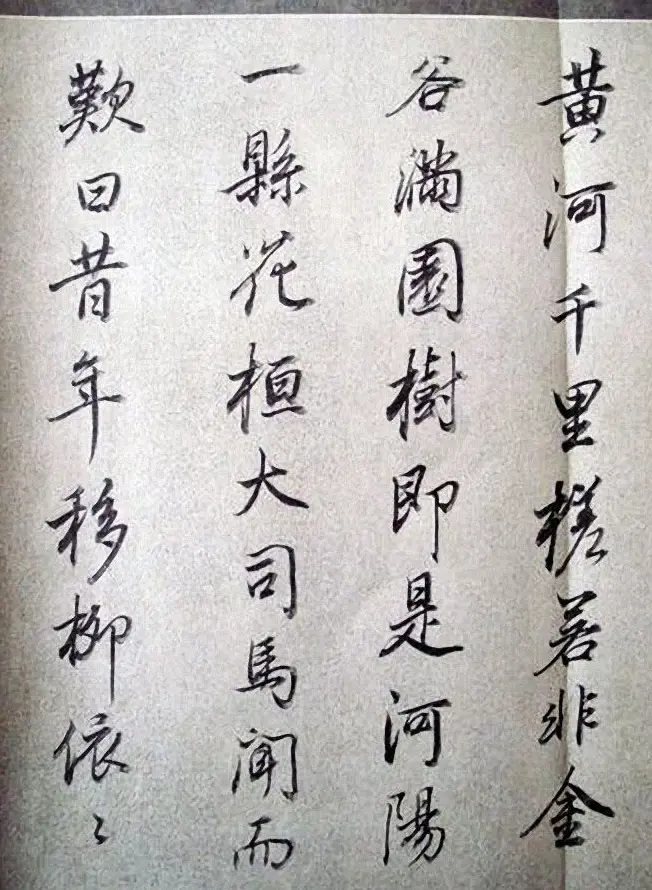 黃河千里槎若非金
谷滿園樹即是河陽
一縣花桓大司馬聞而
歎曰昔年移柳依〻